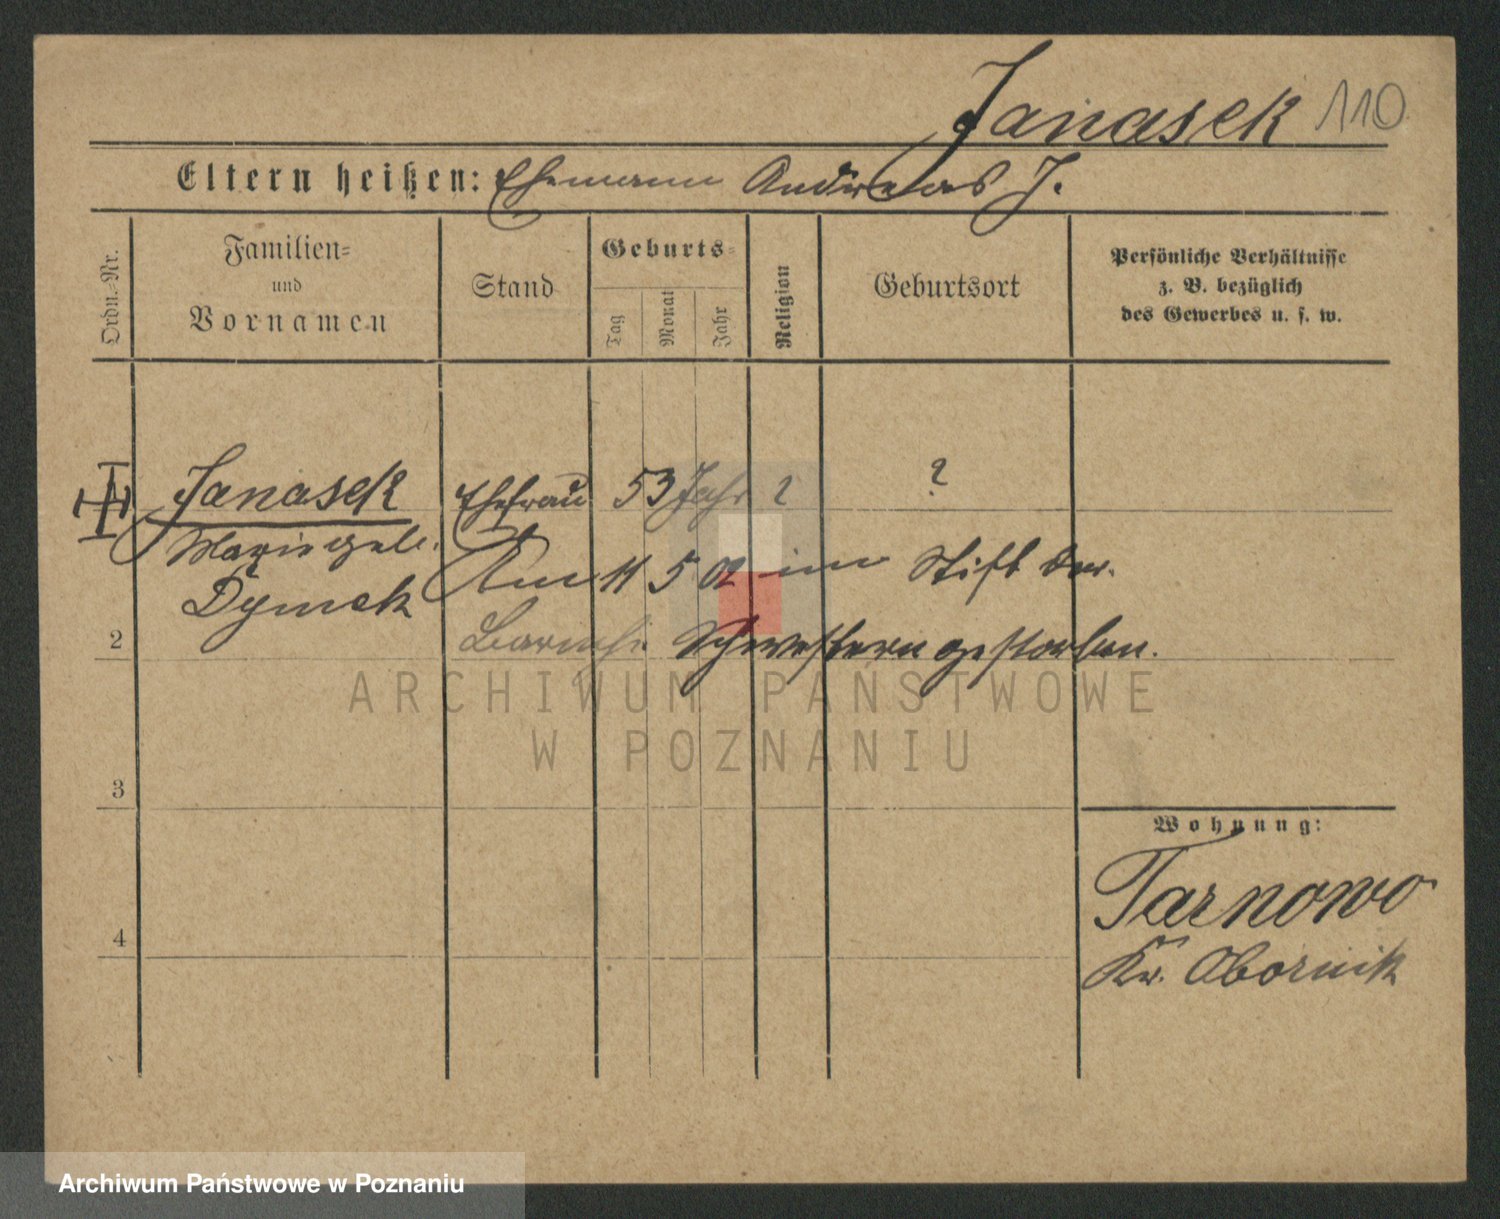 Janasek 110
Eltern heißen: Ehemann Andreas J.
Ordn.-Nr.
Familien-
und
Vornamen
Stand
Geburts-
Tag
Monat
Jahr
Religion
Geburtsort
Persönliche Verhältnisse
z. B. bezüglich
des Gewerbes u. s. w.
Janasek Ehefrau 53 Jahr ? ?
Marie geb.
Dymek
Am 11 5 02 im Stift der
Barmh. Schwestern gestorben.
2
3
4
Wohnung:
Tarnowo
Kr. Obornik
ARCHIWUM PAŃSTWOWE
W POZNANIU
Archiwum Państwowe w Poznaniu